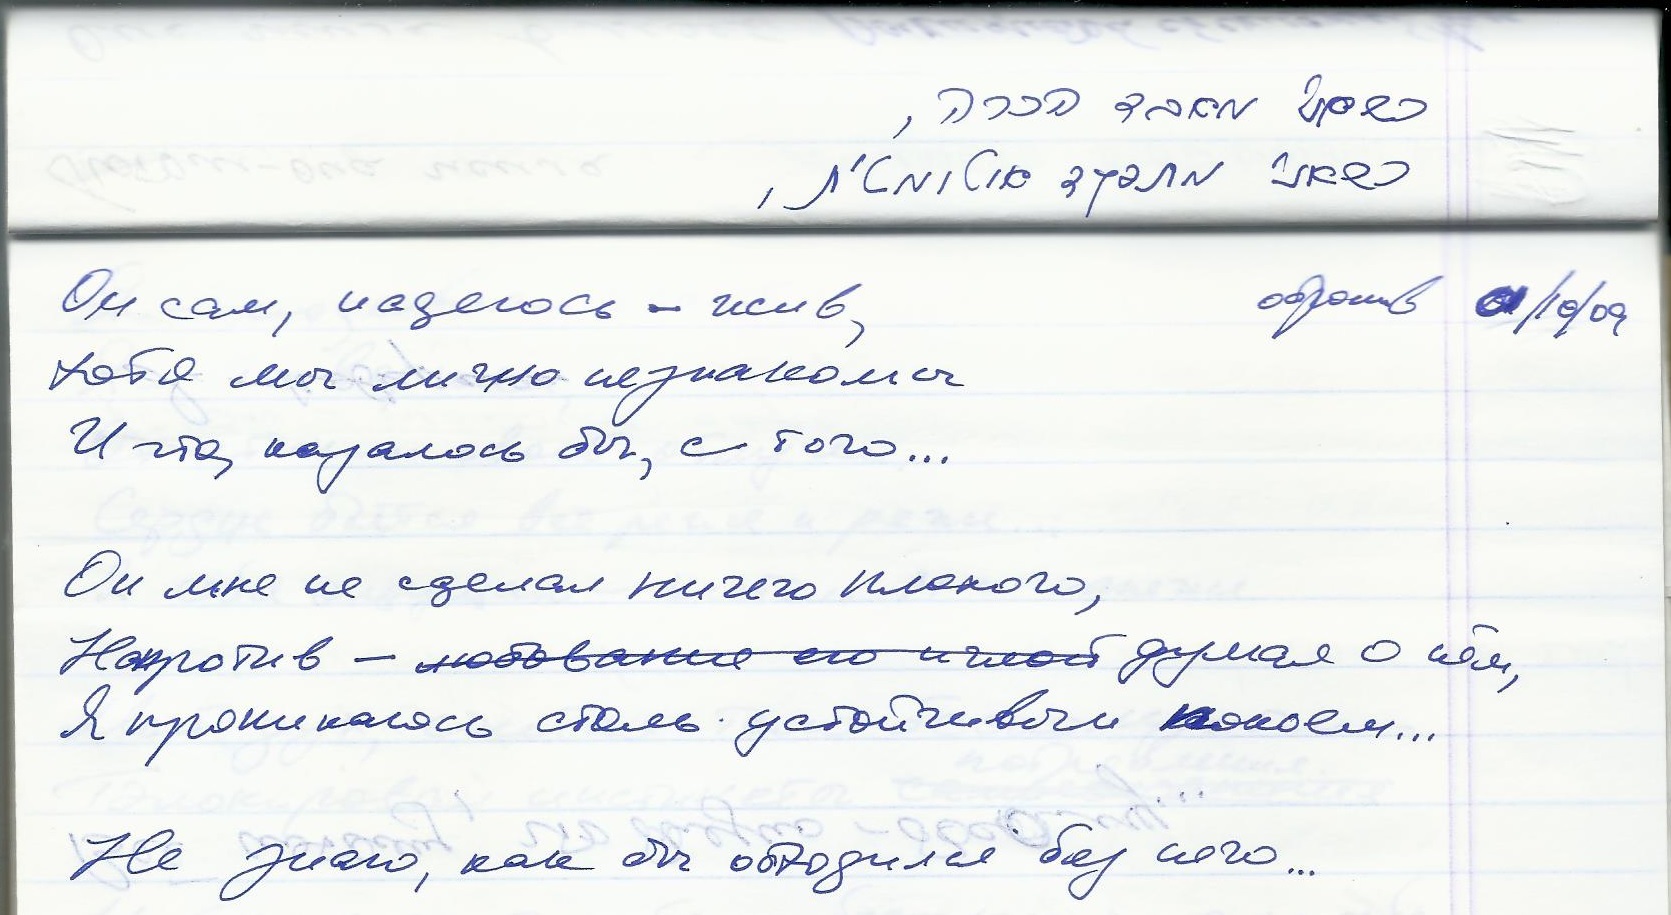 כשאני מאבד הכרה,
כשאני מתפקד אוטומטית,
Он сам, надеюсь – жив, /10/09
хотя мы лично незнакомы
И что, казалось бы, с того...
Он мне не сделал ничего плохого,
Напротив – думая о нём,
Я проникаюсь столь устойчивым покоем...
Не знаю, как бы обходился без него...